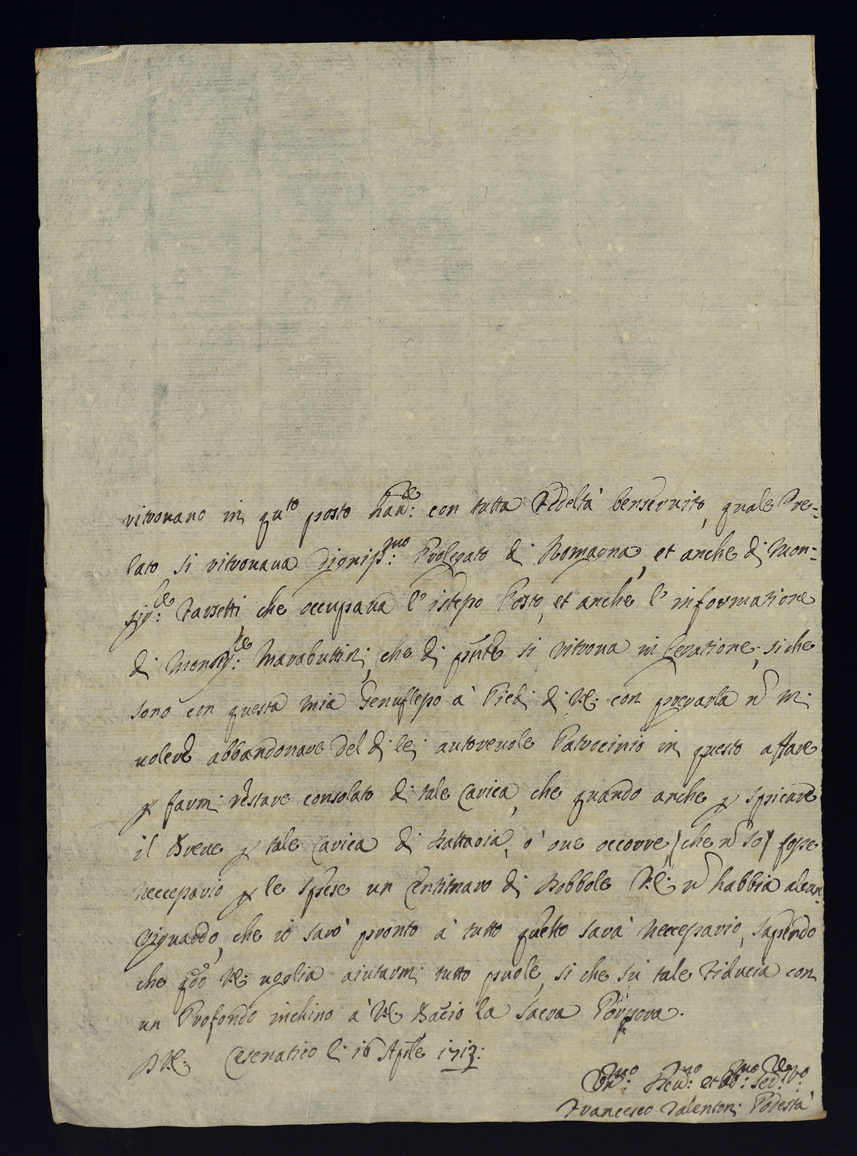 ritrovano in qu.to posto han.do: con tutta Fedeltà benservito, quale Pre-
lato si ritrovava digniss.mo: Prolegato di Romagna, et anche di Mon-
sig.re: Tassetti che occupava l'istesso Posto, et anche l'informatione
di Monsig.re: Marabuttini, che di pnte si ritrova in Legatione, si che
sono con questa mia Genuflesso à Piedi di VE: con pregarla nõ mi
volere abbandonare del di lei autorevole Patrocinio in questo affare
p farmi restare consolato di tale Carica, che quando anche p spicare
il Breve p tale Carica di Battaria, ò ove occorre (che nõ so) fosse
neccessario p le spese un Centinaro di Dobbole VE: nõ habbia alcun
riguardo, che io sarò pronto à tutto quello sarà neccessario, sapendo
che qdo VE: voglia aiutarmi tutto puole, si che sù tale Fiducia con
un Profondo inchino à VE Bacio la Sacra Porpora.
D VE: Cesenatico li 16 Aple 1713:
Um.mo: Dev.mo: et Ob.mo: Ser.re V.o:
Francesco Valentoni Podestà